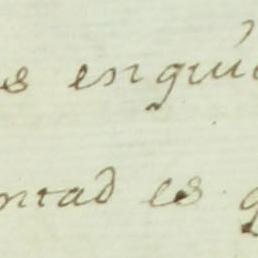 s en qui
ntad es q